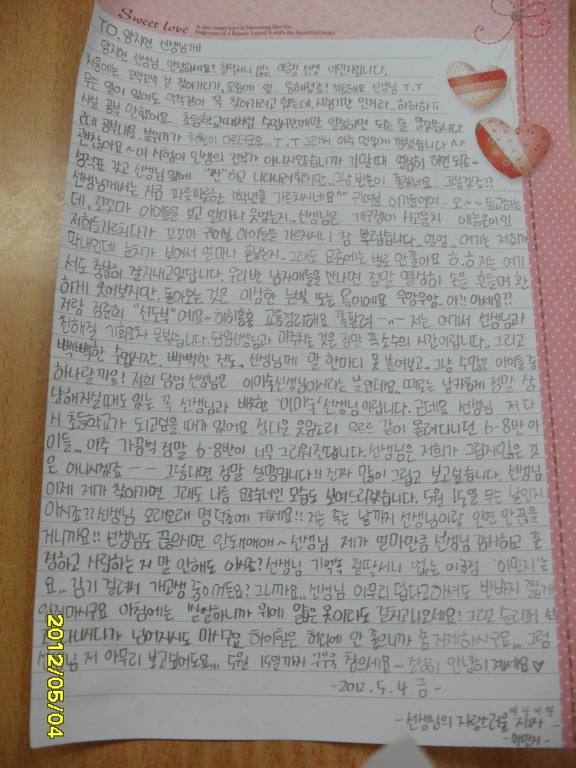 Sweet love
A dear sweet love is blooming like the
fragrance of a flower. I send it with my beautiful heart.
TO. 양지연 선생님께
양지연 선생님. 안녕하세요? 철딱서니 없는 여중생 이민지입니다.
처음에는 꼬박꼬박 잘 찾아가다가, 요즘에 영.. 뜸해졌죠? 죄송해요 선생님 T.T
무슨 일이 있어도 악착같이 꼭 찾아가려고 했는데, 시험기간 인거라.. 하하하ii
사실 공부 안했어요.. 초등학교때처럼 수업시간에만 열심히하면 되는 줄 알았습니다.
근데 공부내용, 분위기가 차원이 다르더군요... T.T 그래서 아주 망했습니다^^
괜찮아요~ 이 시험이 인생의 전부가 아니지않습니까 기말때 열심히 하면 되죠~
성적표 갖고 선생님 앞에 "짠"하고 나타나려 했지만.. 그냥 빈손이 좋겠네요.. 그럼겠죠??
선생님께서는 지금 파릇파릇한 1학년을 가르치시네요^^ 귀여운 아기들이여.. 오~~ 등교하는
데, 꼬꼬마 아이들을 보고 얼마나 웃었는지.. 선생님은
저희들 가르치다가 꼬꼬마 귀여운 아이들을 가르치시니 참 부럽습니다.. 엉엉. 여기는 저희가
막내인데 눈치가 보여서 얼마나 힘든지.. 그래도 요즘에는 뭐 안좋아요 ㅎ.ㅎ 저는 여기
서도 충분히 잘지내고있답니다. 우리반 남자애들을 만나면 정말 열심히 손을 흔들며 환
하게 웃어보지만, 돌아오는 것은 이상한 눈빛 또는 욕이에요 우왕우왕.. 아!! 아세요??
저랑 김준희 "선도부"예요~ 하하홍홍 교통정리해요 쪽팔려 -"- 저는 여기서 선생님과
친해질 기회조차 못잡습니다. 담임선생님과 마주치는 것은 점심 특소속의 시간이랍니다.. 그리고
빽빽한 수업시간, 빽빽한 진도.. 선생님께 말 한마디 못 붙여보고.. 그냥 수많은 아이들 중
하나랄까요? 저희 담임 선생님은 이미숙선생님이시라는 분인데요. 때로는 날카롭게 정말 상
냥해지실때도 있는 꼭 선생님과 비슷한 '이미숙' 선생님이랍니다. 근데요 선생님 저 다
시 초등학교가 되고싶을 때가 있어요 정다운 웃음소리 우르르 같이 몰려다니던 6-8반 아
이들... 아주 가끔씩 정말 6-8반이 너무 그리워진답니다. 선생님은 저희가 그립지않은 것
은 아니시겠죠 -- 그렇다면 정말 실망입니다!! 진짜 많이 그립고 보고싶습니다. 선생님
이제 제가 찾아가면 그래도 나름 요조숙녀인 모습도 보여드리겠습니다. 5월 15일 무슨 날인지
아시죠?? 선생님 오래오래 명덕초에 계세요!! 저는 죽는 날까지 선생님이랑 인연 안 끊을
거니까요!! 선생님도 끊으시면 안되애애애~ 선생님 제가 얼마만큼 선생님 감사하고 존
경하고 사랑하는 지 말 안해도 아시죠? 선생님 기억속 철딱서니 없는 이중생 '이민지'는
요... 감기 걸려서 개고생 중이거든요? 그니까요.. 선생님 아무리 덥다고하셔도 반바지 짧게
입지마시구요 아침에는 쌀쌀하니까 위에 얇은 옷이라도 걸치고나오세요! 그리고 슬리퍼 신
넘어지셔도 마시구요 하이힐은 허리에 안 좋으니까 좀 자제하시구요... 그럼
선생님 저 아무리 보고싶어도요... 5월 15일까지 꾸욱꾹 참으세요~ 조심히 안녕히 계세요♡
- 2012. 5. 4. 금 -
- 선생님의 자랑스러운 제자 -
- 이민지 -
2012/05/04